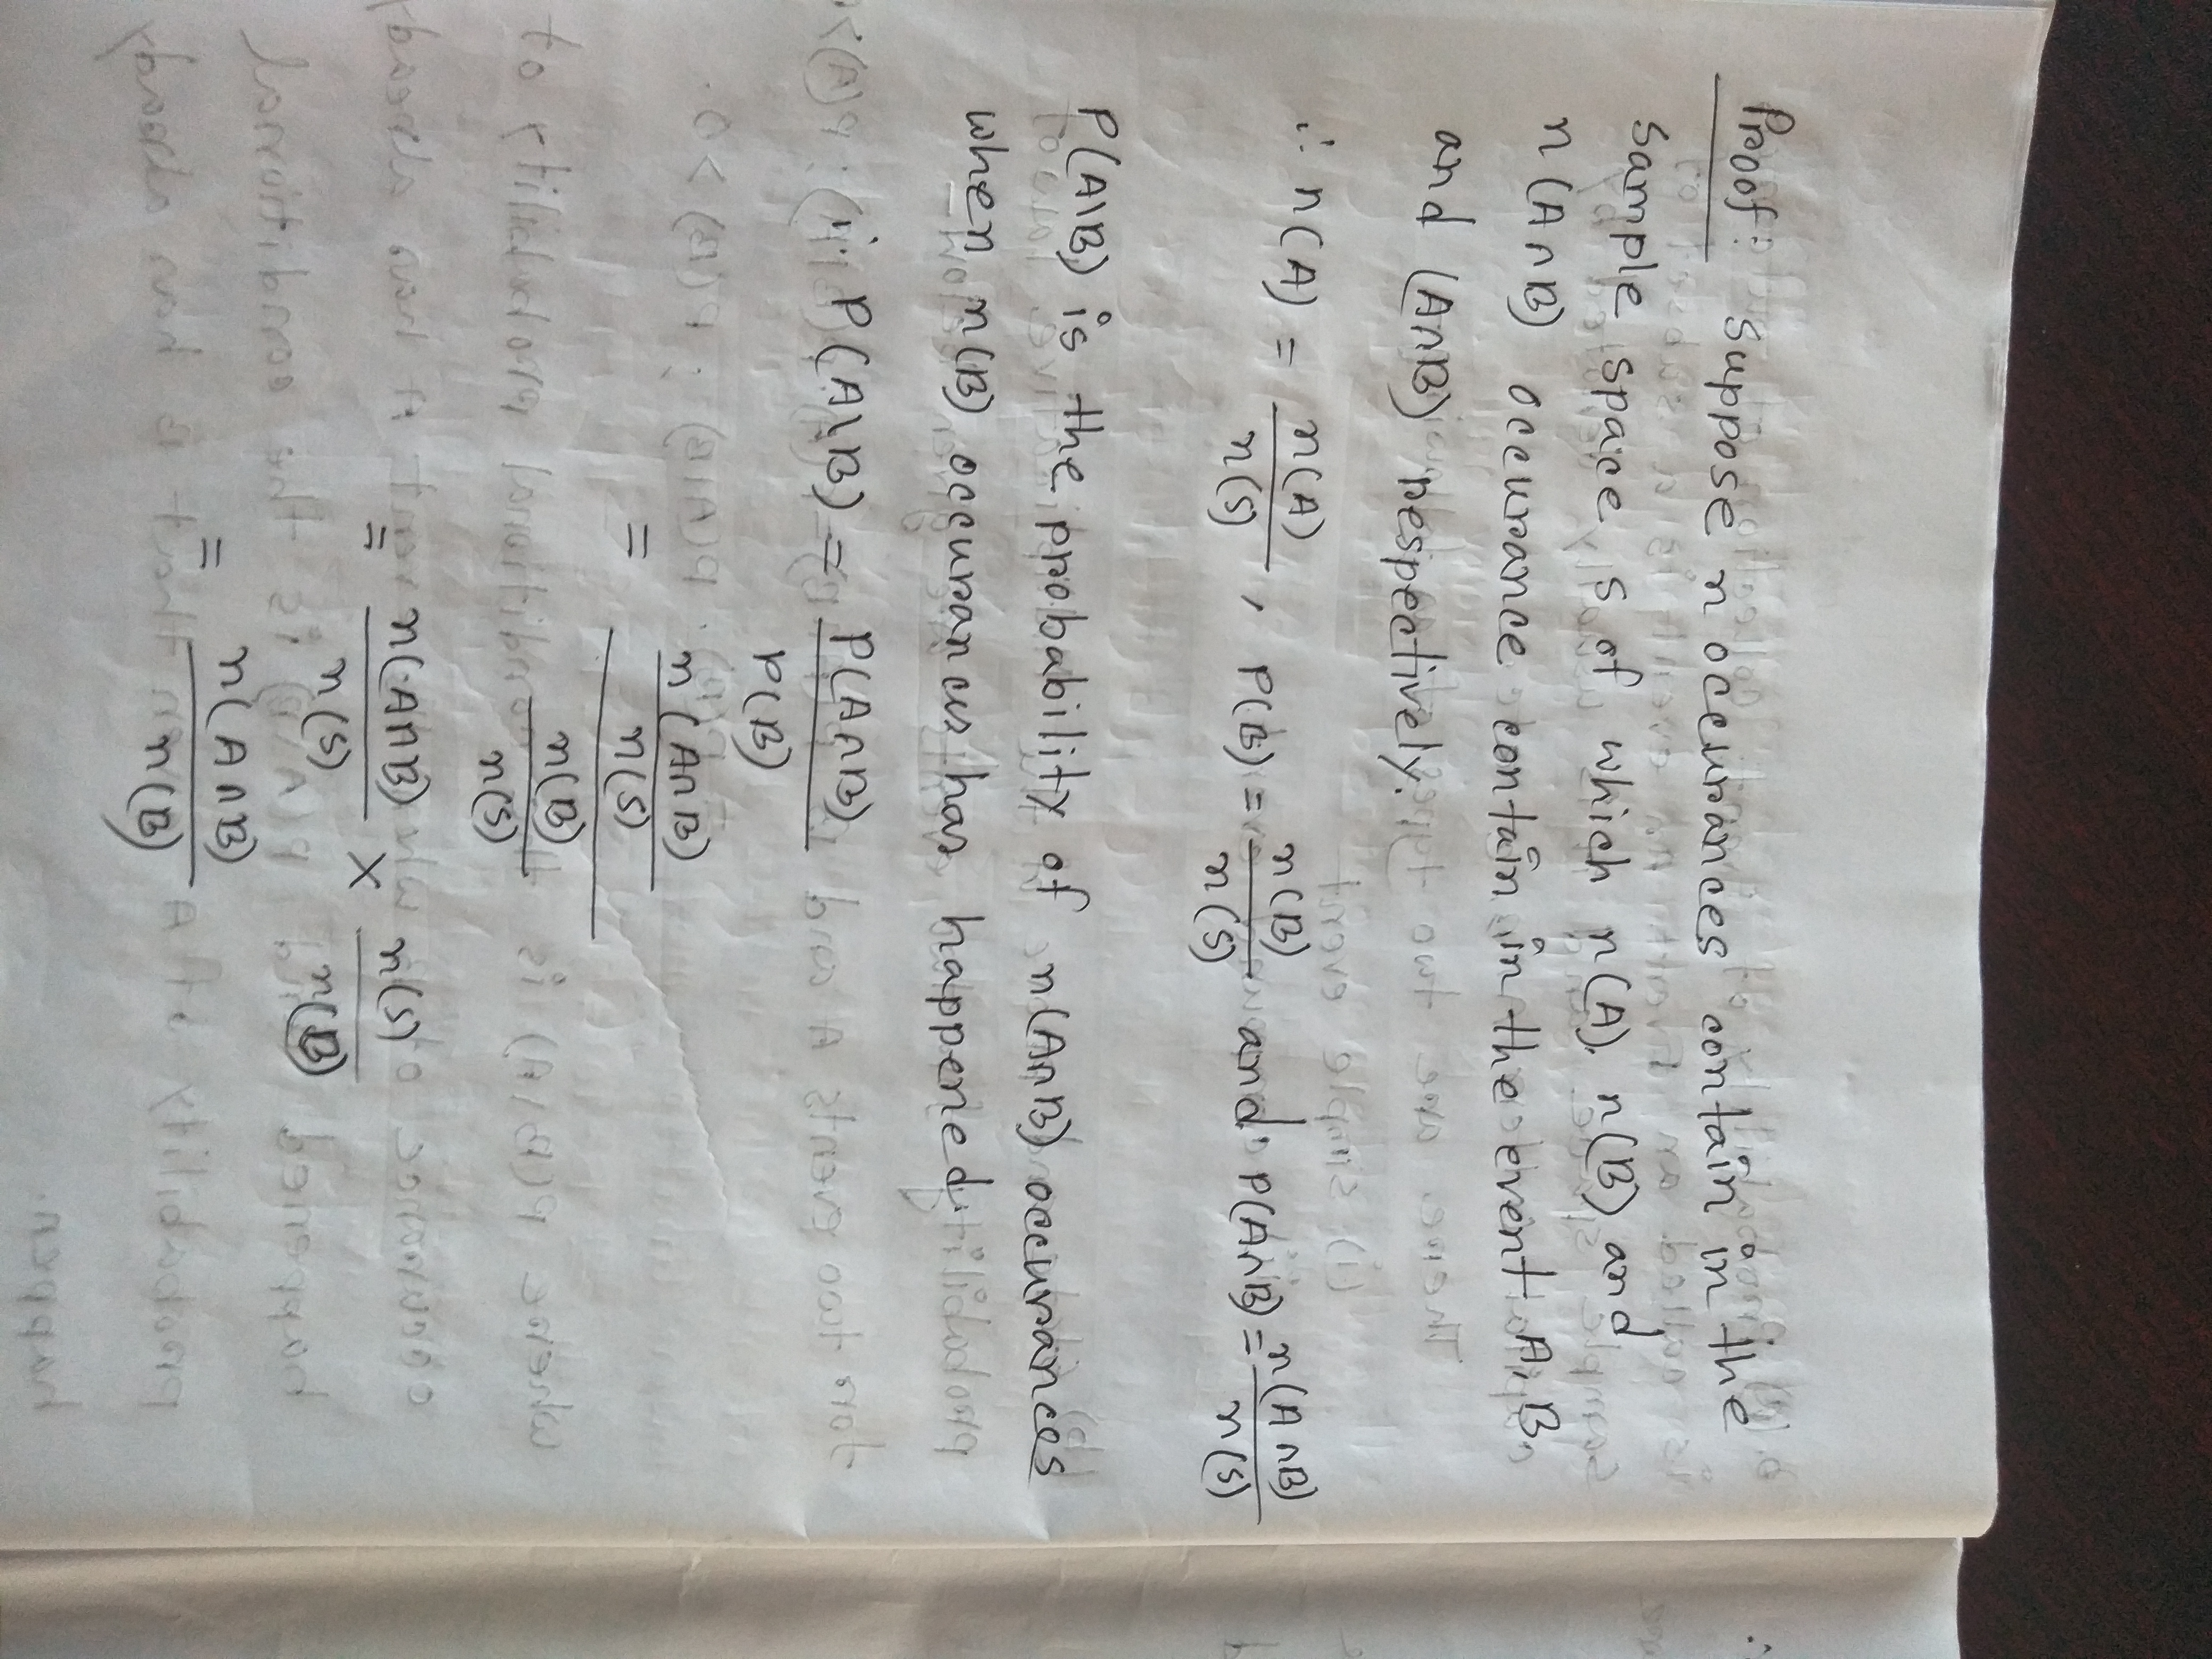 Proof: Suppose n occurances contain in the
Sample space s of which n(A), n(B) and
n(A∩B) occurance contain in the event A, B.
and (A∩B) respectively.
∴ n(A) = n(A)/n(S), P(B) = n(B)/n(S) and P(A∩B) = n(A∩B)/n(S)
P(A\B) is the probability of n(A∩B) occurances
when n(B) occurances has happened.
∴ P(A\B) = P(A∩B)/P(B)
= (n(A∩B)/n(S))/(n(B)/n(S))
= n(A∩B)/n(S) × n(S)/n(B)
= n(A∩B)/n(B)